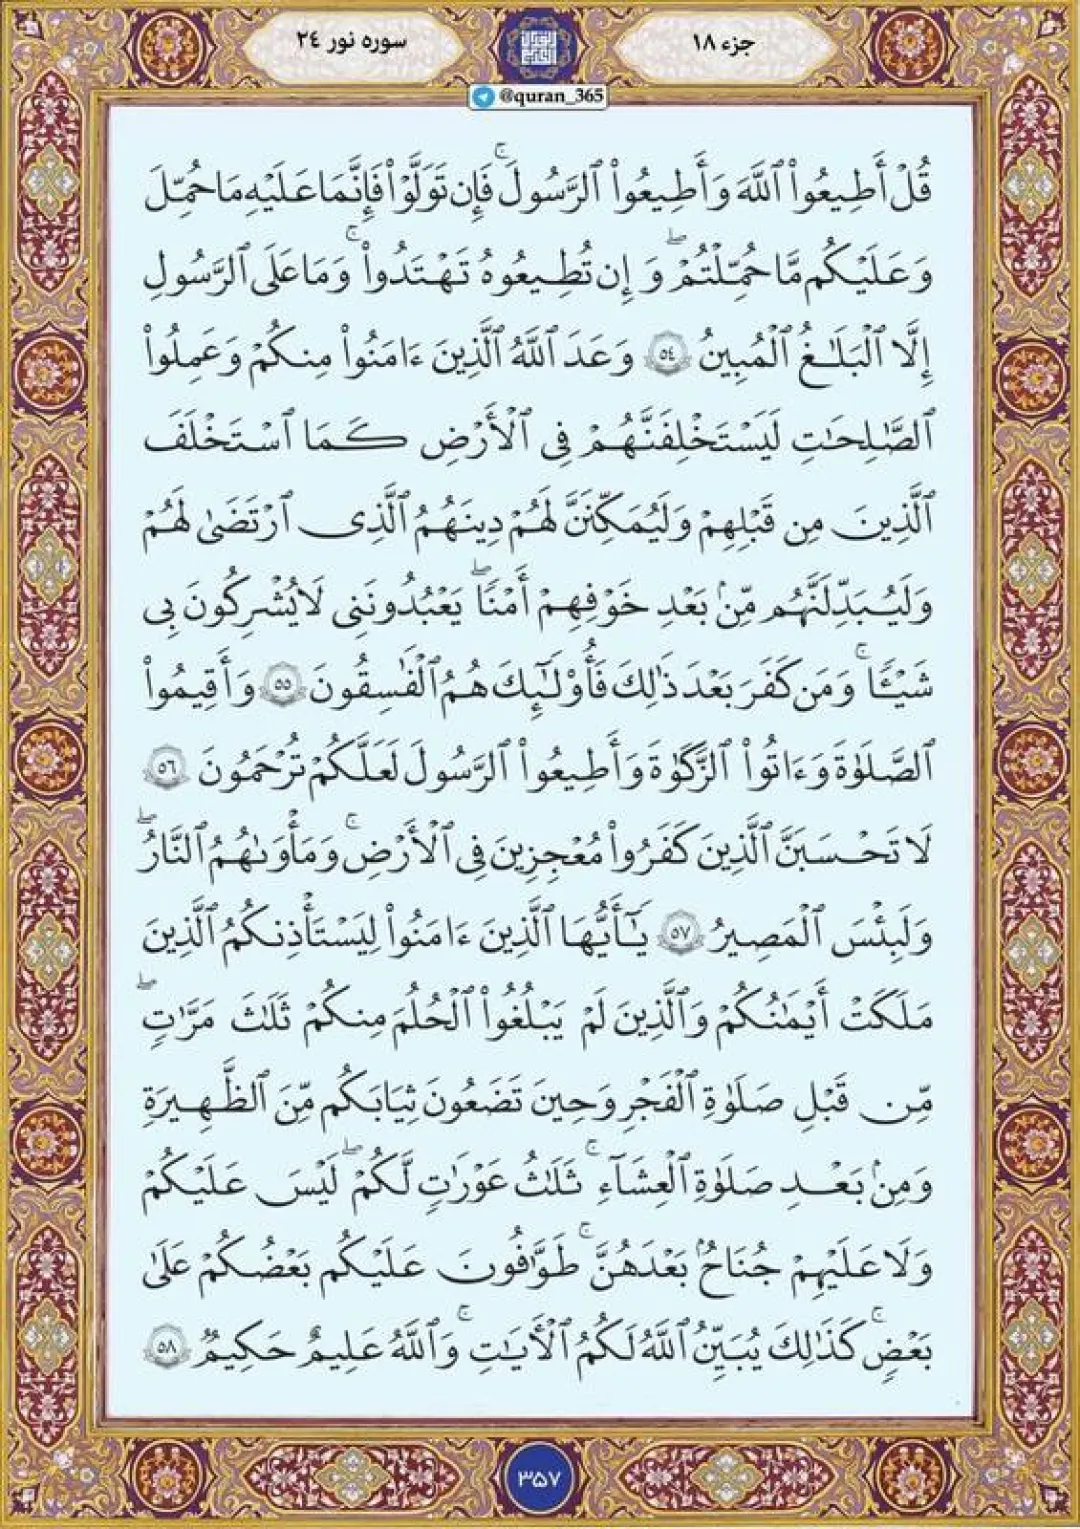 جزء ۱۸
سوره نور ۲٤
@quran_365
قُلْ أَطِيعُوا۟ ٱللَّهَ وَأَطِيعُوا۟ ٱلرَّسُولَ ۚ فَإِن تَوَلَّوْا۟ فَإِنَّمَا عَلَيْهِ مَا حُمِّلَ
وَعَلَيْكُم مَّا حُمِّلْتُمْ ۖ وَإِن تُطِيعُوهُ تَهْتَدُوا۟ ۚ وَمَا عَلَى ٱلرَّسُولِ
إِلَّا ٱلْبَلَـٰغُ ٱلْمُبِينُ ٥٤ وَعَدَ ٱللَّهُ ٱلَّذِينَ ءَامَنُوا۟ مِنكُمْ وَعَمِلُوا۟
ٱلصَّـٰلِحَـٰتِ لَيَسْتَخْلِفَنَّهُمْ فِى ٱلْأَرْضِ كَمَا ٱسْتَخْلَفَ
ٱلَّذِينَ مِن قَبْلِهِمْ وَلَيُمَكِّنَنَّ لَهُمْ دِينَهُمُ ٱلَّذِى ٱرْتَضَىٰ لَهُمْ
وَلَيُبَدِّلَنَّهُم مِّنۢ بَعْدِ خَوْفِهِمْ أَمْنًا ۖ يَعْبُدُونَنِى لَا يُشْرِكُونَ بِى
شَيْـًٔا ۚ وَمَن كَفَرَ بَعْدَ ذَٰلِكَ فَأُو۟لَـٰٓئِكَ هُمُ ٱلْفَـٰسِقُونَ ٥٥ وَأَقِيمُوا۟
ٱلصَّلَوٰةَ وَءَاتُوا۟ ٱلزَّكَوٰةَ وَأَطِيعُوا۟ ٱلرَّسُولَ لَعَلَّكُمْ تُرْحَمُونَ ٥٦
لَا تَحْسَبَنَّ ٱلَّذِينَ كَفَرُوا۟ مُعْجِزِينَ فِى ٱلْأَرْضِ ۚ وَمَأْوَىٰهُمُ ٱلنَّارُ ۖ
وَلَبِئْسَ ٱلْمَصِيرُ ٥٧ يَـٰٓأَيُّهَا ٱلَّذِينَ ءَامَنُوا۟ لِيَسْتَـْٔذِنكُمُ ٱلَّذِينَ
مَلَكَتْ أَيْمَـٰنُكُمْ وَٱلَّذِينَ لَمْ يَبْلُغُوا۟ ٱلْحُلُمَ مِنكُمْ ثَلَـٰثَ مَرَّٰتٍ ۖ
مِّن قَبْلِ صَلَوٰةِ ٱلْفَجْرِ وَحِينَ تَضَعُونَ ثِيَابَكُم مِّنَ ٱلظَّهِيرَةِ
وَمِنۢ بَعْدِ صَلَوٰةِ ٱلْعِشَآءِ ۚ ثَلَـٰثُ عَوْرَٰتٍ لَّكُمْ ۖ لَيْسَ عَلَيْكُمْ
وَلَا عَلَيْهِمْ جُنَاحٌۢ بَعْدَهُنَّ ۚ طَوَّٰفُونَ عَلَيْكُم بَعْضُكُمْ عَلَىٰ
بَعْضٍ ۚ كَذَٰلِكَ يُبَيِّنُ ٱللَّهُ لَكُمُ ٱلْـَٔايَـٰتِ ۚ وَٱللَّهُ عَلِيمٌ حَكِيمٌ ٥٨
۳۵۷